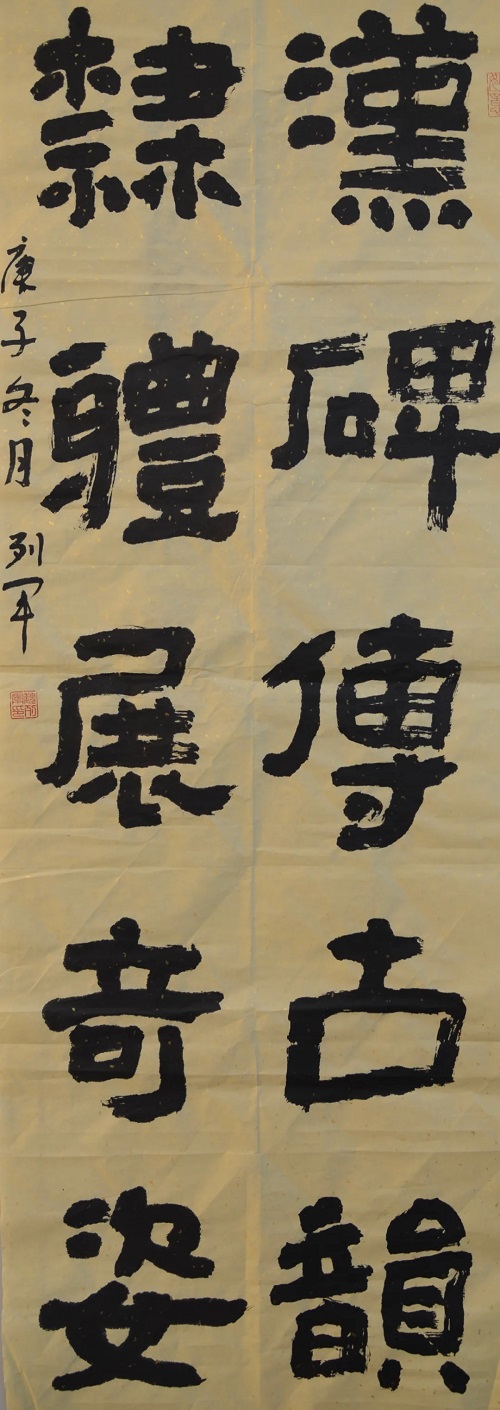 漢碑傳古韻
隸體展奇姿
庚子冬月 列軍